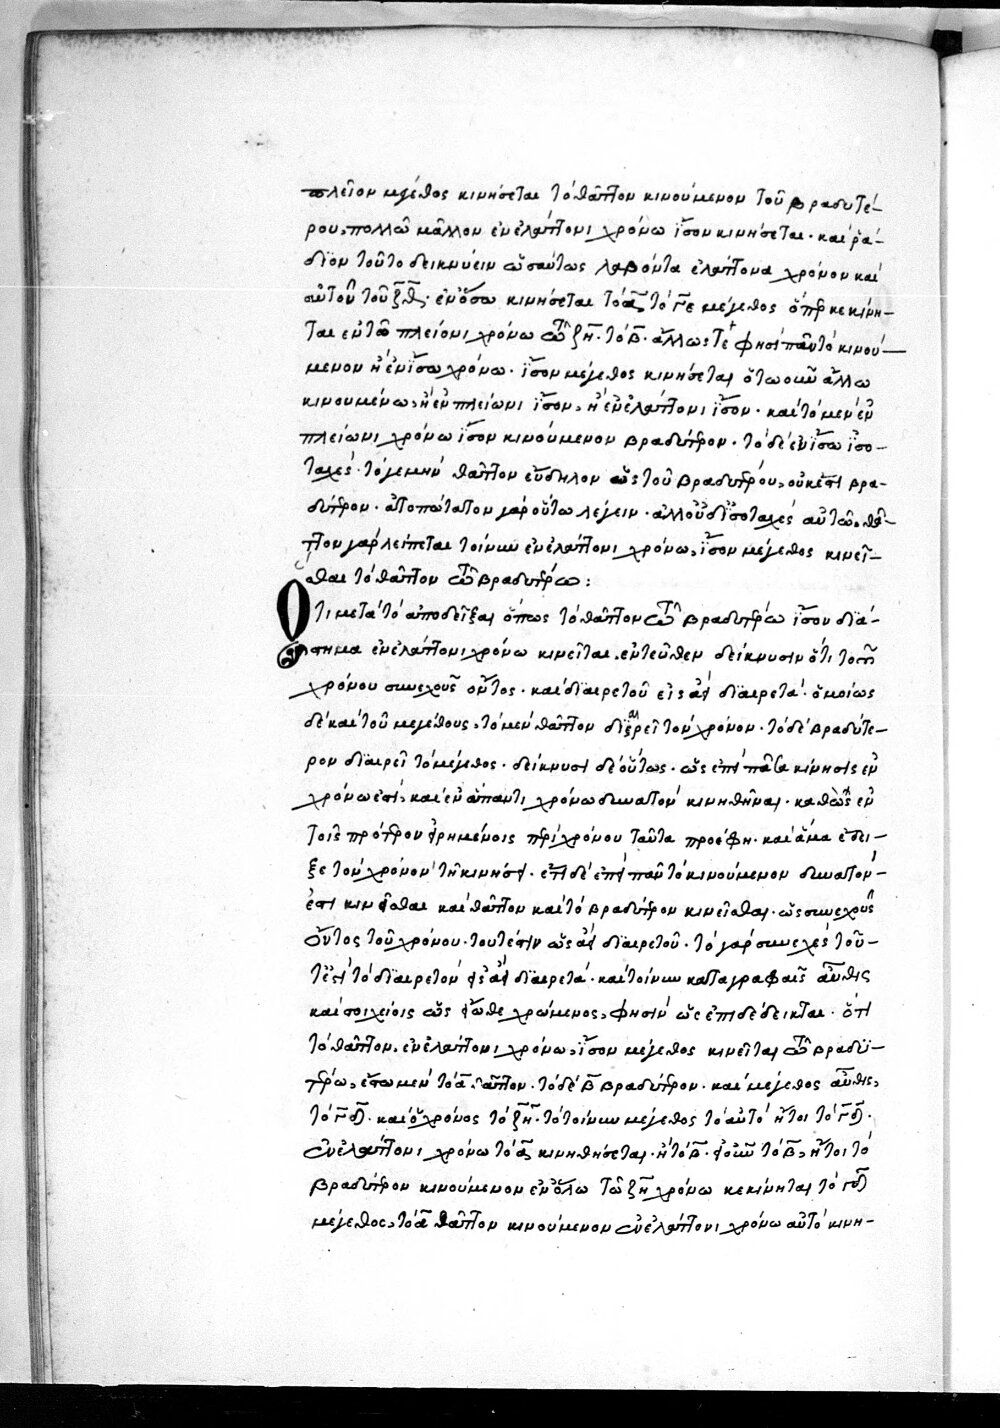 πλεῖον μέγεθος κινήσεται τὸ θᾶττον κινούμενον τοῦ βραδυτέ-
ρου, πολλῶ μᾶλλον ἐν ἐλάττονι χρόνω ἴσον κινήσεται· καὶ ῥά-
διον τοῦτο δεικνύειν ὡσαύτως λαβόντα ἐλάττονα χρόνον καὶ
αὐτὸν τοῦ ζ̅θ̅· ἐν ὅσω κινήσεται τὸ α̅ τὸ γ̅ε̅ μέγεθος ὅπερ κεκίνη-
ται ἐν τῶ πλείονι χρόνω τῶ ζ̅η̅· τὸ β̅· ἄλλως τέ φησι πᾶν τὸ κινού-
μενον ἢ ἐν ἴσω χρόνω· ἴσον μέγεθος κινήσεται ὅτω οὖν ἄλλω
κινουμένω, ἢ ἐν πλείωνι ἴσον, ἢ ἐν ἐλάττονι ἴσον· καὶ τὸ μὲν ἐν
πλείωνι χρόνω ἴσον κινούμενον βραδύτερον· τὸ δὲ ἐν ἴσω ἰσο-
ταχές· τό γε μὴν θᾶττον εὔδηλον ὡς τοῦ βραδυτέρου, οὐκ ἔστι βρα-
δύτερον· ἀτοπώτατον γὰρ οὕτω λέγειν· ἀλλ' οὐδ' ἰσοταχὲς αὐτῶ, θᾶτ-
τον γάρ λείπεται τοίνυν ἐν ἐλάττονι χρόνω, ἴσον μέγεθος κινεῖ-
σθαι τὸ θᾶττον τῶ βραδυτέρω:
Ὅτι μετὰ τὸ ἀποδεῖξαι ὅπως τὸ θᾶττον τῶ βραδυτέρω ἴσον διά-
στημα ἐν ἐλάττονι χρόνω κινεῖται, ἐντεῦθεν δείκνυσιν ὅτι τοῦ
χρόνου συνεχοῦς ὄντος· καὶ διαιρετοῦ εἰς ἀεὶ διαιρετά· ὁμοίως
δὲ καὶ τοῦ μεγέθους, τὸ μὲν θᾶττον διαιρεῖ τὸν χρόνον· τὸ δὲ βραδύτε-
ρον διαιρεῖ τὸ μέγεθος· δείκνυσι δὲ οὕτως· ὡς ἐπεὶ πᾶσα κίνησις ἐν
χρόνω ἐστί, καὶ ἐν ἅπαντι χρόνω δυνατὸν κινηθῆναι· καθὼς ἐν
τοῖς πρότερον εἰρημένοις περὶ χρόνου ταῦτα προέφη· καὶ ἅμα ἔδει-
ξε τὸν χρόνον τῆ κινήσει· ἔτι δὲ ἐπεὶ πᾶν τὸ κινούμενον δυνατόν
ἐστι κινεῖσθαι καὶ θᾶττον καὶ τὸ βραδύτερον κινεῖσθαι, ὡς συνεχοῦς
ὄντος τοῦ χρόνου· τουτέστιν ὡς ἀεὶ διαιρετοῦ· τὸ γὰρ συνεχὲς τοῦ-
τ' ἐστὶ τὸ διαιρετὸν εἰς ἀεὶ διαιρετά· καὶ τοίνυν καταγραφαῖς αὖθις
καὶ στοιχείοις ὡς εἴωθε χρώμενος, φησὶν ὡς ἐπεὶ δέδεικται· ὅτι
τὸ θᾶττον, ἐν ἐλάττονι χρόνω, ἴσον μέγεθος κινεῖται τῶ βραδυ-
τέρω, ἔστω μὲν τὸ α̅ θᾶττον· τὸ δὲ β̅ βραδύτερον· καὶ μέγεθος αὖθις,
τὸ γ̅δ̅· καὶ ὁ χρόνος τὸ ζ̅η̅· τὸ τοίνυν μέγεθος τὸ αὐτὸ ἤτοι τὸ γ̅δ̅·
ἐν ἐλάττονι χρόνω τὸ α̅ κινηθήσεται· ἢ τὸ β̅· εἰ οὖν τὸ β̅, ἤτοι τὸ
βραδύτερον κινούμενον ἐν ὅλω τῶ ζ̅η̅ χρόνω κεκίνηται τὸ γ̅δ̅
μέγεθος, τὸ α̅ θᾶττον κινούμενον ἐν ἐλάττονι χρόνω αὐτὸ κινη-